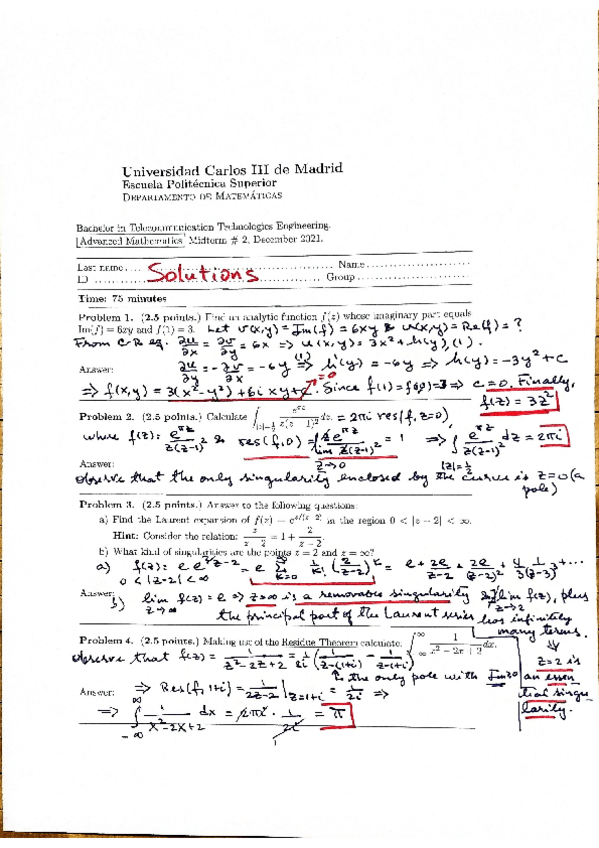 Universidad Carlos III de Madrid
Escuela Politécnica Superior
DEPARTAMENTO DE MATEMÁTICAS
Bachelor in Telecommunication Technologies Engineering.
Advanced Mathematics Midterm # 2, December 2021.
Last name.... Solutions Name
ID Group
Time: 75 minutes
Problem 1. (2.5 points.) Find an analytic function f(z) whose imaginary part equals
Im(f) = 6xy and f(1) = 3. Let v(x,y) = Im(f) = 6xy & u(x,y) = Re(f) = ?
From C-R eq. ∂u/∂x = ∂v/∂y = 6x => u(x,y) = 3x² + h(y), (1).
Answer: ∂u/∂y = -∂v/∂x = -6y (1)=> h'(y) = -6y => h(y) = -3y² + c
=> f(x,y) = 3(x²-y²) + 6ixy + c. Since f(1) = f(1,0) = 3 => c = 0. Finally,
f(z) = 3z²
Problem 2. (2.5 points.) Calculate ∫|z|=½ e^{πz}/z(z-1)² dz. = 2πi res(f, z=0)
where f(z): e^{πz}/z(z-1)² & res(f,0) = lim z→0 z e^{πz}/z(z-1)² = 1 => ∫|z|=½ e^{πz}/z(z-1)² dz = 2πi
Answer:
observe that the only singularity enclosed by the curve is z=0 (a
pole)
Problem 3. (2.5 points.) Answer to the following questions:
a) Find the Laurent expansion of f(z) = e^{z/(z-2)} in the region 0 < |z - 2| < ∞.
Hint: Consider the relation: z/(z-2) = 1 + 2/(z-2).
b) What kind of singularities are the points z = 2 and z = ∞?
a) f(z) = e e^{2/z-2} = e ∑ k=0 ∞ 1/k! (2/z-2)^k = e + 2e/z-2 + 2e/(z-2)² +
0 < |z-2| < ∞
Answer: b) lim z→∞ f(z) = e => z=∞ is a removable singularity lim z→2 f(z), plus
the principal part of the Laurent series has infinitely
many terms.
Problem 4. (2.5 points.) Making use of the Residue Theorem calculate,
observe that f(z) = 1/z²-2z+2 = 1/2i (1/z-(1+i) - 1/z-(1-i))
the only pole with Im>0
z=2 is
an essen-
tial singu-
larity.
Answer: => Res(f, 1+i) = 1/2z-2 |z=1+i = 1/2i =>
=> ∫ -∞ ∞ 1/x²-2x+2 dx = 2πi · 1/2i = π
1